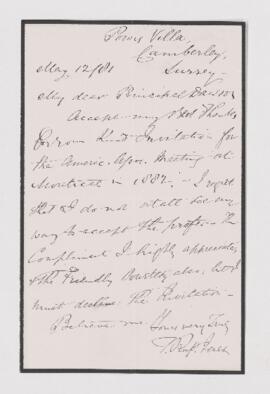 Powis Villa,
Camberley,
Surrey
May 12/81
My dear Principal Dawson
Accept my best thanks
for your kind invitation for
the Americ. Assn. Meeting at
Montreal in 1882; I regret
that I do not at all see my
way to accept the proffer. The
compliment I highly appreciate
& the friendly also, but I
must decline the invitation.
Believe me Yours very truly
T. Rupt. Jones